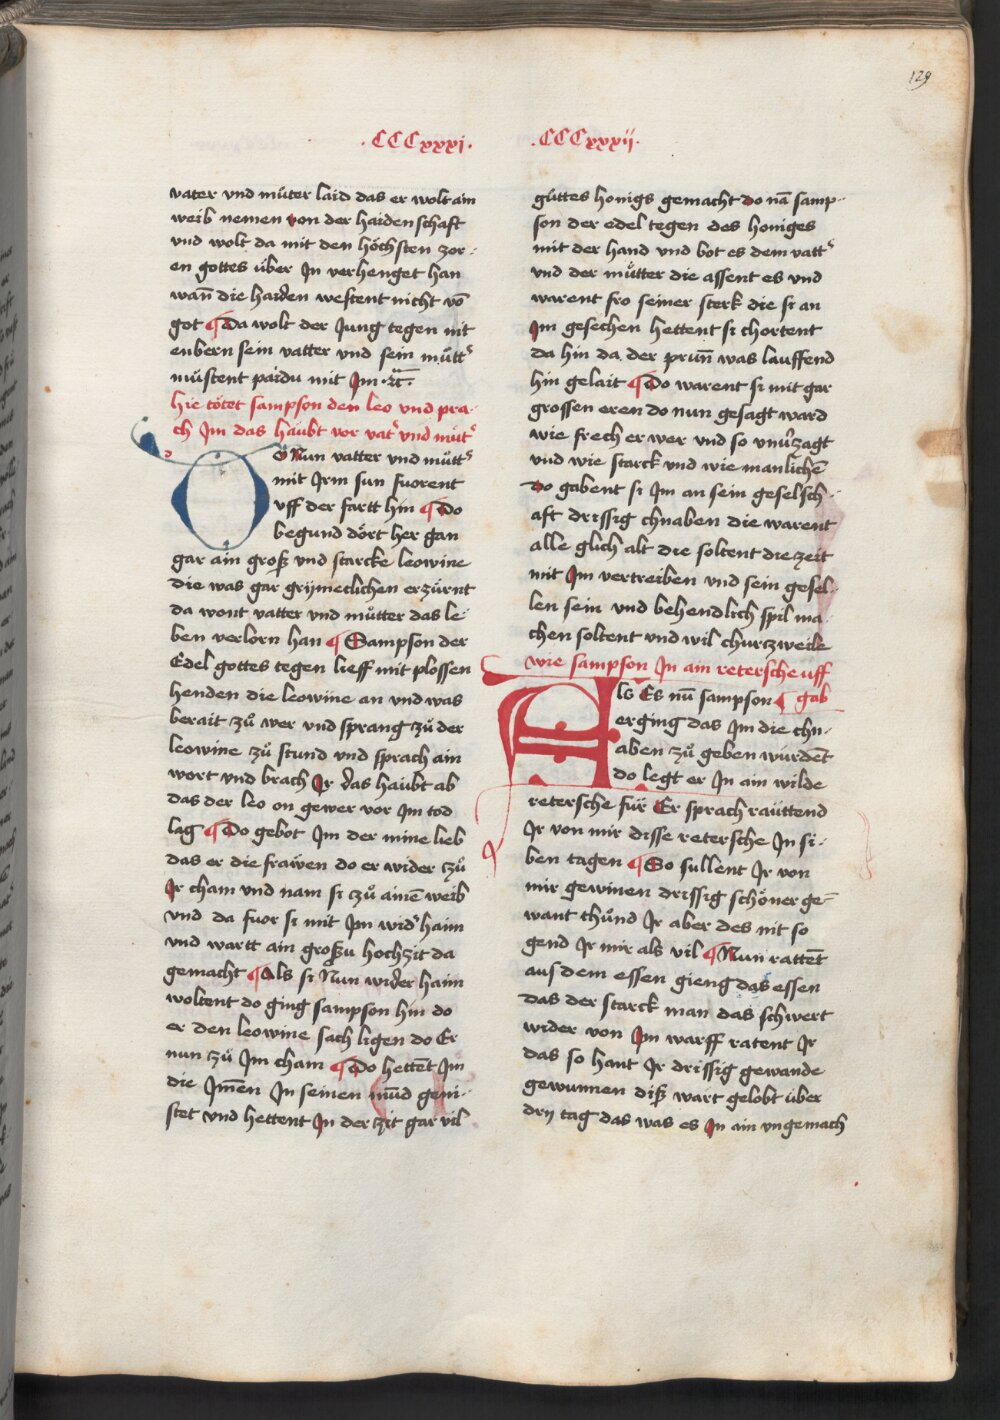 129
.CCCxxxj.
vater vnd můter laid das er wolt ain
weib nemen von der haidenschafft
vnd wolt da mit den höchsten zor-
en gottes über Jn verhenget han
wan̄ die haiden westent nicht vō
got ¶ Da wolt der Jung tegen nit
enbern sein vatter vnd sein můtt˜s
můstent paidu mit Jm ·rc̄·
hie tötet sampson den leo vnd pra-
ch Jm das haubt vor vat˜s vnd můt˜s
O Nun vatter vnd můtt˜s
mit Jrm sun fuorent
vff der fartt hin ¶ Do
begund dört her gan
gar ain groß vnd starcke leowine
die was gar grymeclichen erzürnt
da wont vatter vnd můtter das le-
ben verlorn han ¶ Sampson der
Edel gottes tegen lieff mit plossen
henden die leowine an vnd was
berait zů wer vnd sprang zů der
leowine zů stund vnd sprach ain
wort vnd brach Jr das haubt ab
das der leo on gewer vor Jm tod
lag ¶ Do gebot Jm der mine lieb
das er die frawen do er wider zů
Jr cham vnd nam si zů ainē weib
vnd da fuor si mit Jm wid˜s haim
vnd wartt ain grosßu hochzit da
gemacht ¶ Als si Nun wider haim
woltent do ging sampson hin do
er den leowine sach ligen do Er
nun zů Jm cham ¶ Do hettēt Jm
die Jm̄en Jn seinen mūd geni-
stet vnd hettent Jn der zit gar vil
.CCCxxxij.
gůttes honigs gemacht do nā samp-
son der edel tegen des honiges
mit der hand vnd bot es dem vatt˜s
vnd der můtter die assent es vnd
warent fro seiner sterk die si an
Jm gesechen hettent si chortent
da hin da der prun̄ was lauffend
hin gelait ¶ Do warent si mit gar
grossen eren do nun gesagt ward
wie frech er wer vnd so vnu˜szagt
vnd wie starck vnd wie manlichē
do gabent si Jm an sein geselsch-
aft drissig chnaben die warent
alle glich alt die soltent die zeit
mit Jm vertreiben vnd sein gesel-
len sein vnd behendlich spil ma-
chen soltent vnd wil churzweile
wie sampson Jn ain retersche vff
Als Es nū sampson ¶ gab
erging das Jm die chn-
aben zů geben wurdēt
do legt er Jn ain wilde
retersche für Er sprach rauttend
Jr von mir disse retersche Jn si-
ben tagen ¶ So sullent Jr von
mir gewinen drissig schöner ge-
want thůnd Jr aber des nit so
gend Jr mir als vil ¶ Nun rattēt
aus dem essen gieng das essen
das der starck man das schwert
wider von Jm warff ratent Jr
das so hant Jr drissig gewande
gewunnen diß wart gelobt über
dry tag das was es Jn ain vngemach